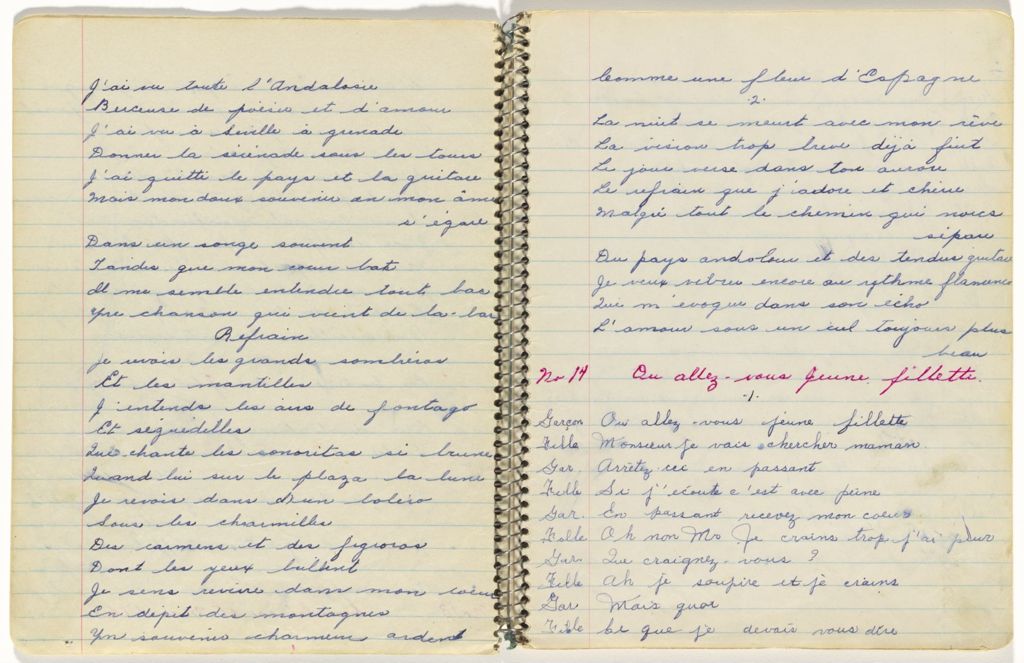 J'ai vu toute l'Andalosie
Berceuse de poésie et d'amour
J'ai vu à Séville à grenade
Donner la sérénade sous les tours
J'ai quitté le pays et la guitare
Mais mon doux souvenir en mon âme
s'égare
Dans un songe souvent
Tandis que mon coeur bat
Il me semble entendre tout bas
Une chanson qui vient de la-bas
Refrain
Je revois les grands sombréros
Et les mantilles
J'entends les airs de fontago
Et séguidilles
Que chante les sonoritas si brune
Quand lui sur le plaza la lune
Je revois dans un boléro
Sous les charmilles
Des carmens et des figoros
Dont les yeux brillent
Je sens revivre dans mon coeur
En dépit des montagnes
Un souvenir charmeur ardent
Comme une fleur d'Espagne
2.
La nuit se meurt avec mon rêve
La vision trop breve déjà fuit
Le jour verse dans ton aurore
Le refrain que j'adore et chérie
Malgré tout le chemin qui nous
sépare
Du pays andolour et des tendres guitare
Je veux vibrer encore au rythme flamenco
Qui m'évoque dans son écho
L'amour sous un ciel toujours plus
beau
No 14 Ou allez-vous Jeune fillette.
-1.
Garçon Ou allez-vous jeune fillette
Fille Monsieur je vais chercher maman.
Gar. Arrêtez ici en passant
Fille Si j'écoute c'est avec peine
Gar. En passant recevez mon coeur
Fille Oh non Mr Je crains trop j'ai peur
Gar. Que craignez-vous?
Fille Ah je soupire et je crains
Gar Mais quoi
Fille Ce que je devais vous dire